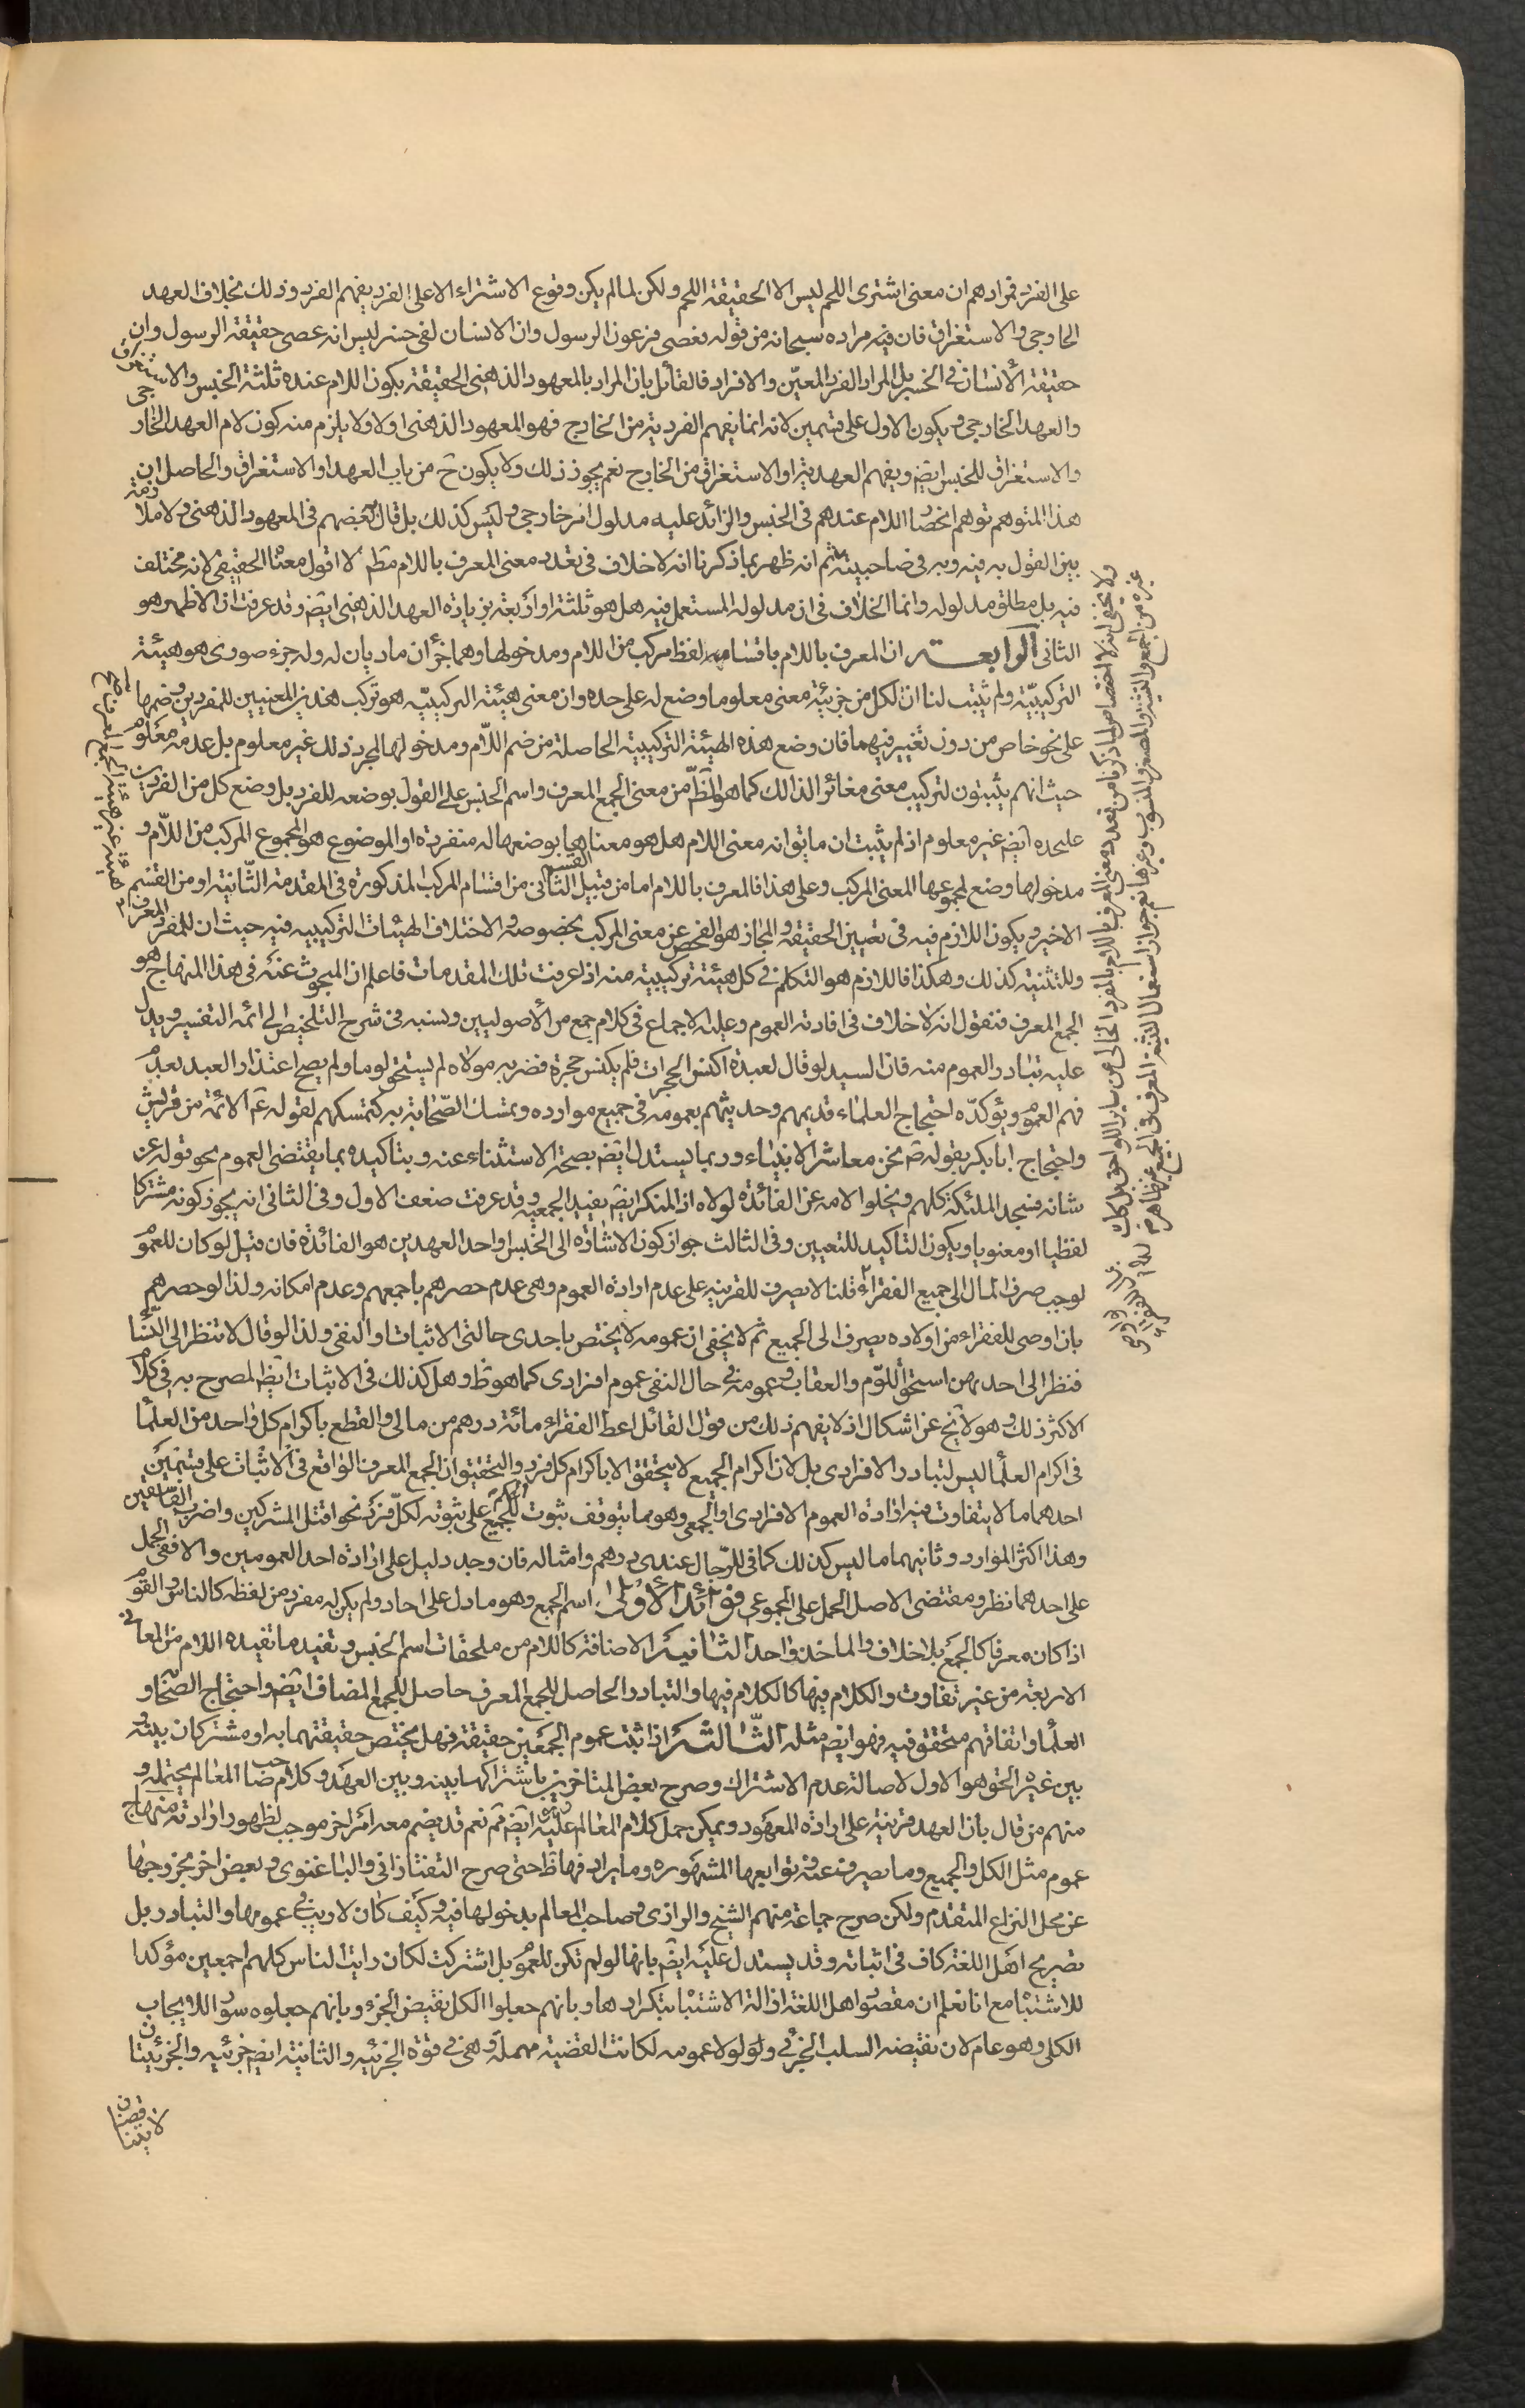 على الفرد فمرادهم ان معنى اشترى اللحم ليس الا الحقيقة اللحم ولكن لما لم يكن وقوع الاشتراء الا على الفرد يفهم الفرد وذلك بخلاف العهد
الخارجى والاستغراق فان فيه مراده سبحانه من قوله فعصى فرعون الرسول وان الانسان لفى خسر ليس انه عصى حقيقة الرسول وان
حقيقة الانسان فى الخسر بل المراد الفرد المعيّن والافراد فالقائل بان المراد بالمعهود الذهنى الحقيقة يكون اللام عنده ثلثة الجنس والاستغراق
والعهد الخارجى ويكون الاول على قسمين لانه انما يفهم الفردية من الخارج فهو المعهود الذهنى اولا ولا يلزم منه كون لام العهد الخارجى
والاستغراق للجنس ايضا ويفهم العهدية او الاستغراق من الخارج نعم يجوز ذلك ولا يكون ح من باب العهد او الاستغراق والحاصل ان
هذا المتوهم توهم انحصار اللام عندهم فى الجنس والزائد عليه مدلول امر خارجى وليس كذلك بل قال بعضهم فى المعهود الذهنى ولا ملازمة
بين القول به فيه وبه فى صاحبيه ثم انه ظهر بما ذكرنا انه لا خلاف فى تعدد معنى المعرف باللام مطم لا اقول معناه الحقيقى لانه مختلف
فيه بل مطلق مدلوله وانما الخلاف فى ان مدلوله المستعمل فيه هل هو ثلثة او اربعة بزيادة العهد الذهنى ايضا وقد عرفت ان الاظهر هو
الثانى الرابعة ان المعرف باللام باقسامه لفظ مركب من اللام ومدخولها وهما جزأن ماديان له وله جزء صورى هو هيئة
التركيبيّة ولم يثبت لنا ان لكل من جزئيه معنى معلوما وضع له على حده وان معنى هيئة التركيبيّه هو تركب هذين المعنيين للمفردين وضمها
على نحو خاص من دون تغيير فيهما فان وضع هذه الهيئة التركيبية الحاصلة من ضم اللّام ومدخولها لمجرد ذلك غير معلوم بل عدمه معلوم
حيث انهم يثبتون لتركيب معنى مغائرا لذالك كما هو الظّ من معنى الجمع المعرف واسم الجنس على القول بوضعه للفرد بل وضع كل من الفردين
عليحده ايضا غير معلوم اذ لم يثبت ان ما يتوانه معنى اللام هل هو معناها بوضعها له منفردة او الموضوع هو المجموع المركب من اللّام و
مدخولها وضع لمجموعها المعنى المركب وعلى هذا فالمعرف باللام اما من قبيل القسم الثانى من اقسام المركب المذكورة فى المقدمة الثّانية او من القسم
الاخير ويكون اللازم فيه فى تعيين الحقيقة والمجاز هو الفحص عن معنى المركب بخصوصه والاختلاف الهيئات التركيبيه فيه حيث ان للمفرد المعرف
وللتثنية كذلك وهكذا فاللازم هو التكلم فى كل هيئة تركيبية منه اذا عرفت تلك المقدمات فاعلم ان المبحوث عنه فى هذا المنهاج هو
الجمع المعرف فنقول انه لا خلاف فى افادته العموم وعليه الاجماع فى كلام جمع من الأصوليين ونسبه فى شرح التلخيص الى ائمة التفسير ويدل
عليه تبادر العموم منه فان السيد لو قال لعبده اكنس الحجرات فلم يكنس حجرة فضربه مولاه لم يستحق لوما ولم يصح اعتذار العبد بعدم
فهم العموم ويؤكدّه احتجاج العلماء قديمهم وحديثهم بعمومه فى جميع موارده وتمسك الصّحابة به كتمسكهم لقوله ع الائمة من قريش
واحتجاج ابابكر بقوله ص نحن معاشر الانبياء وربما يستدل ايضا بصحة الاستثناء عنه وبتاكيده بما يقتضى العموم نحو قوله عز
شانه فسجد الملئكة كلهم وبخلوا الامه عن الفائدة لولاه اذ المنكر ايضا يفيد الجمعيه وقد عرفت ضعف الاول وفى الثانى انه يجوز كونه مشتركا
لفظيا او معنويا ويكون التاكيد للتعيين وفى الثالث جواز كون الاشارة الى الجنس او احد العهدين هو الفائدة فان قيل لو كان للعموم
لوجب صرف المال الى جميع الفقراء قلنا لا يصرف للقرينه على عدم ارادة العموم وهى عدم حصرهم باجمعهم وعدم امكانه ولذا لو حصرهم
بان اوصى للفقراء من اولاده يصرف الى الجميع ثم لا يخفى ان عمومه لا يختص باحدى حالتى الاثبات او النفى ولذا لو قال لا تنظر الى النساء
فنظر الى احد منهن استحق اللّوم والعقاب وعمومه فى حال النفى عموم افرادى كما هو ظ وهل كذلك فى الاثبات ايضا المصرح به فى كلام
الاكثر ذلك وهو لا يخ عن اشكال اذ لا يفهم ذلك من قول القائل اعط الفقراء مائة درهم من مالى والقطع باكرام كل واحد من العلماء
فى اكرام العلماء ليس لتبادر الافرادى بل لان اكرام الجميع لا يتحقق الا باكرام كل فرد والتحقيق ان الجمع المعرف الواقع فى الاثبات على قسمين
احدهما ما لا يتفاوت فيه ارادة العموم الافرادى او الجمعى وهو مما يتوقف ثبوت الحكم للجميع على ثبوته لكلّ فرد نحو اقتل المشركين واضرب الفاسقين
وهذا اكثر الموارد وثانيهما ما ليس كذلك كما فى للرّجال عندى درهم وامثاله فان وجد دليل على ارادة احد العمومين والا ففى الحمل
على احدهما نظر ومقتضى الاصل الحمل على المجموعى فوائد الأولى اسم الجمع وهو ما دل على احاد ولم يكن له مفرد من لفظه كالناس والقوم
اذا كان معرفا كالجمع بلا خلاف والماخذ واحد الثانية الاضافة كاللام من ملحقات اسم الجنس وتفيد ما تفيده اللام من المعانى
الاربعة من غير تفاوت والكلام فيها كالكلام فيها والتبادر الحاصل للجمع المعرف حاصل للجمع المضاف ايضا واحتجاج الصّحابة و
العلماء واتفاقهم متحقق فيه فهو ايضا مثله الثّالثة اذا ثبت عموم الجمعين حقيقة فهل يختص حقيقتهما به او مشتركان بينه و
بين غيره الحق هو الاول لاصالة عدم الاشتراك وصرح بعض المتاخرين باشتراكهما بينه وبين العهد وكلام صاحب المعالم يحتمله و
منهم من قال بان العهد قرينة على ارادة المعهود ويمكن حمل كلام المعالم عليه ايضا نعم قد يضم معه امر اخر موجب لظهور ارادته منهاج
عموم مثل الكل والجميع وما يصرف عنه وتوابعها المشهورة وما يرادفها ظ حتى صرح التفتازانى والباغنوى وبعض اخر بخروجها
عن محل النزاع المتقدم ولكن صرح جماعة منهم الشيخ والرازى وصاحب المعالم بدخولها فيه وكيف كان لا ريب فى عمومها والتبادر بل
تصريح اهل اللغة كاف فى اثباته وقد يستدل عليه ايضا بانها لو لم تكن للعموم بل اشتركت لكان رايت الناس كلهم اجمعين مؤكدا
للاشتباه مع انا نعلم ان مقصود اهل اللغة ازالة الاشتباه بتكرارها وبانهم جعلوا الكل نقيض الجزء وبانهم جعلوه سور اللايجاب
الكلى وهو عام لان نقيضه السلب الجزئى ولو لا عمومه لكانت القضية مهملة وهى فى قوة الجزئيه والثانية ايضا جزئيه والجزئيتان
لا يتناقضان
ولا يخفى انه لا اختصاص لما ذكرنا من تعدد معنى المعرف باللام بالمفرد الخالى عن ساير اللواحق بل كك
غيره من الجمع والتثنية والمصغر والمنسوب وغيرها نعم جواز استعمال التثنية المعرف فى الجميع غير ظاهر